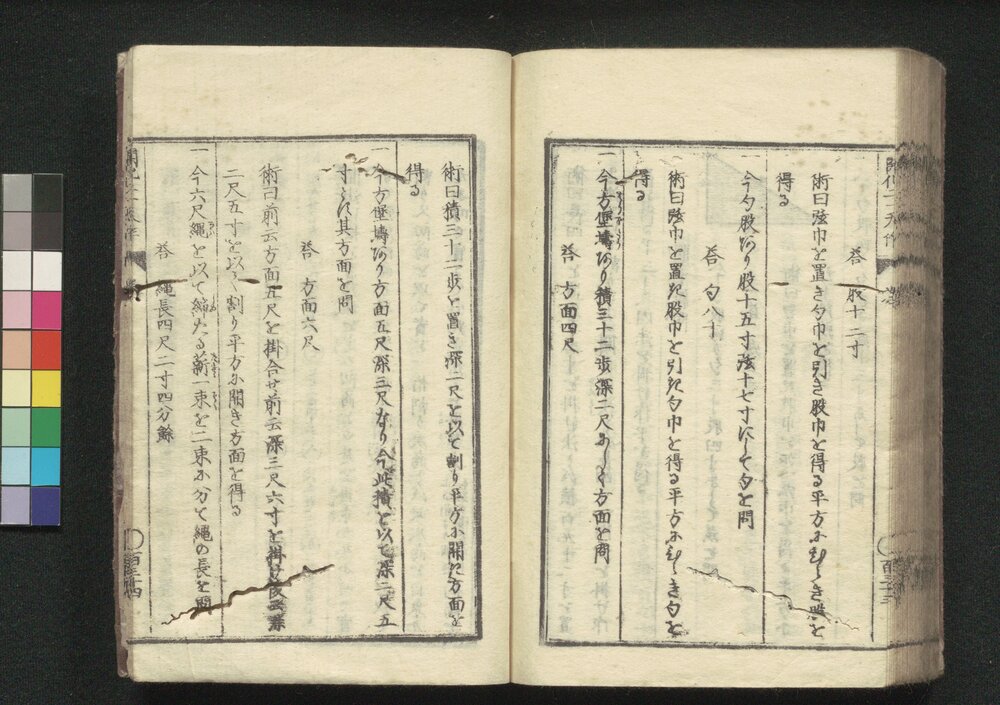 答 股十二寸
術曰弦巾を置き勾巾を引き股巾を得る平方にひらき股を
得る
一今勾股あり股十五寸弦十七寸にして勾を問
答 勾八寸
術曰弦巾を置き股巾を引き勾巾を得る平方にひらき勾を
得る
一今方堡壔あり積三十二歩深二尺にして方面を問
答 方面四尺
術曰積三十二歩を置き深二尺を以て割り平方に開き方面を
得る
一今方堡壔あり方面五尺深三尺なり今此積を以て深二尺五
寸にして其方面を問
答 方面六尺
術曰前云方面五尺を掛合せ前云深三尺六寸を掛け
二尺五寸を以て割り平方に開き方面を得る
一今六尺縄を以て縮たる薪一束を二束に分て縄の長を問
答 縄長四尺二寸四分餘